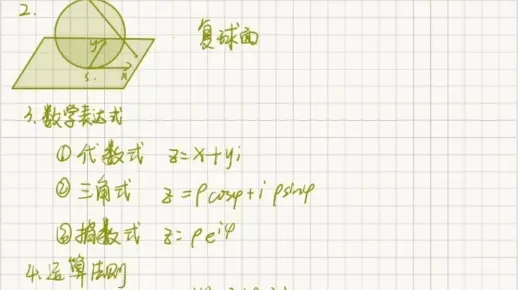 2.
复球面
y
S.
x
3、数学表达式
① 代数式 z=x+yi
② 三角式 z=ρcosφ+iρsinφ
③ 指数式 z=ρe^{iφ}
4、运算法则